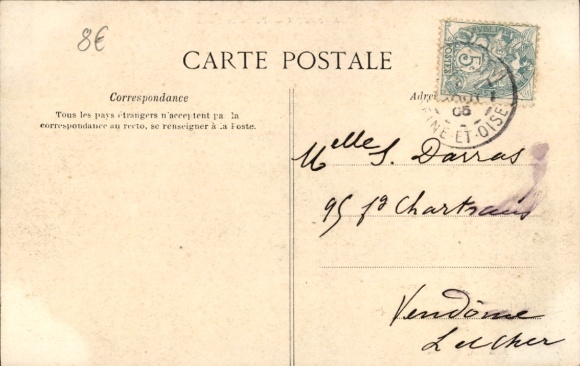 8€
CARTE POSTALE
Correspondance
Tous les pays étrangers n'acceptent pas la
correspondance au recto, se renseigner à la Poste.
Adre
5
POSTES
05
ET-OISE
Melle S. Darras
95 fg Chartrain
Vendôme
L et Cher